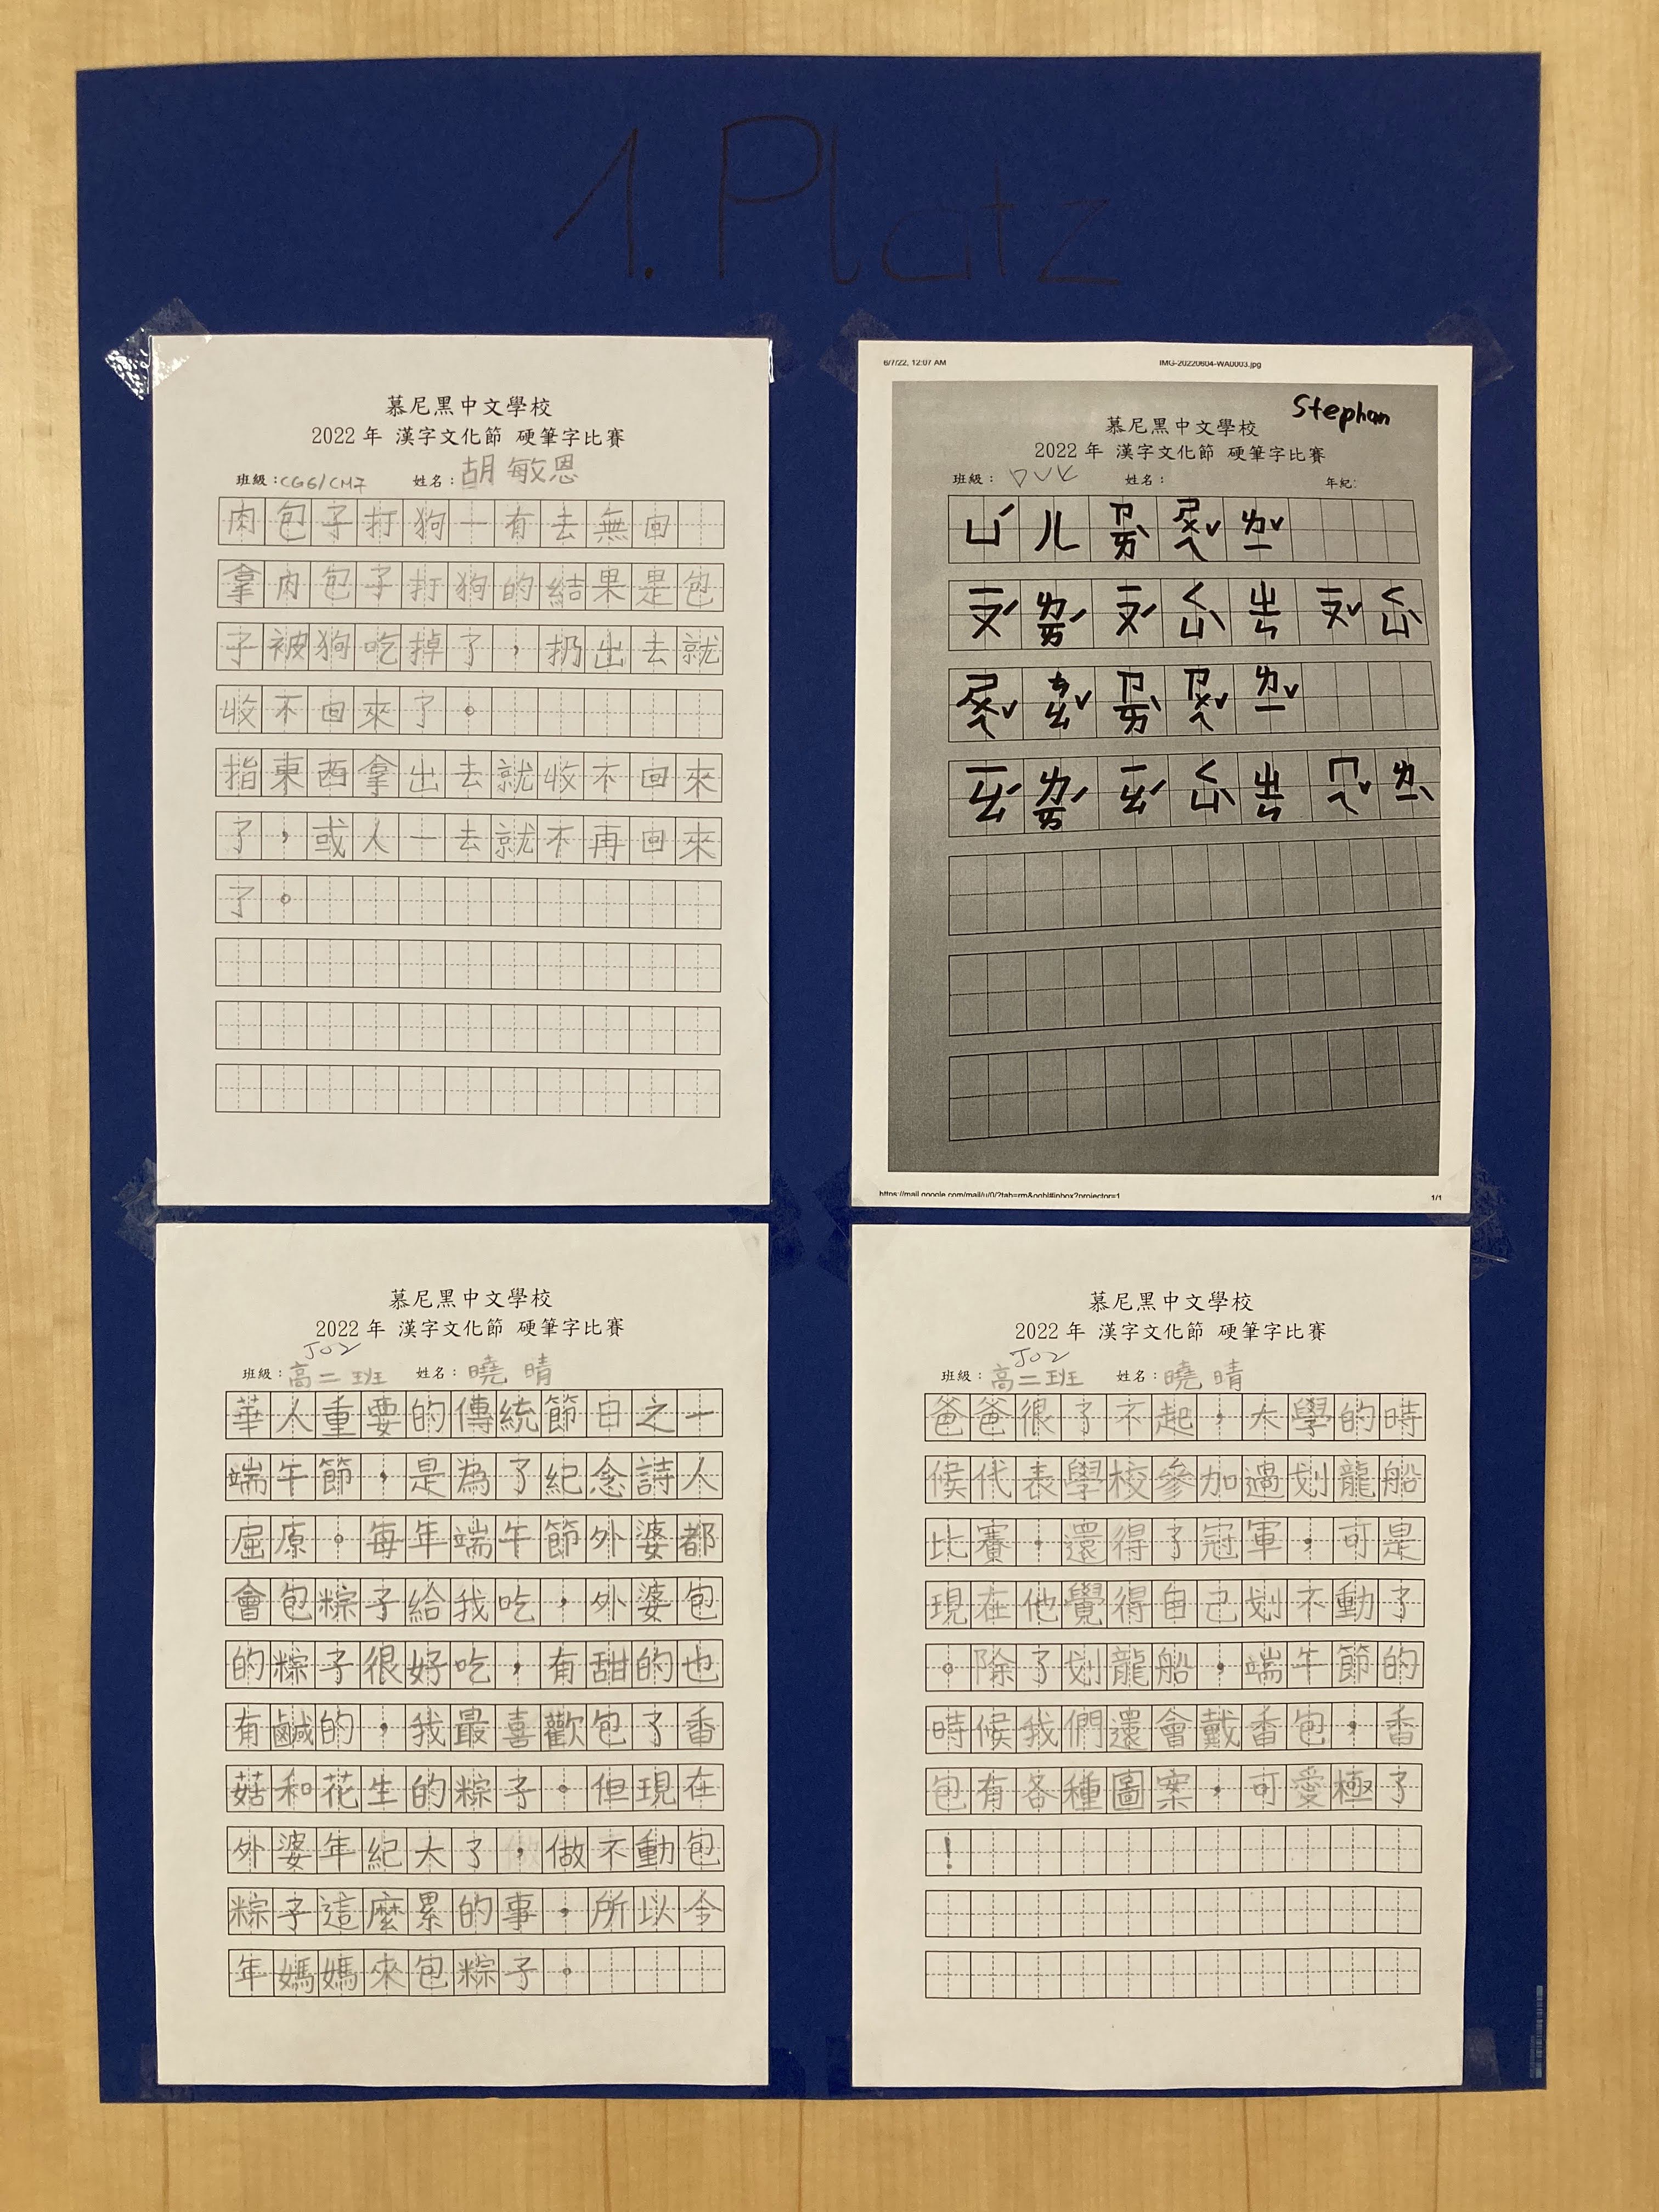 1. Platz
慕尼黑中文學校
2022 年 漢字文化節 硬筆字比賽
班級：CG6/CM7 姓名：胡敏恩
肉包子打狗一有去無回
拿肉包子打狗的結果是包
子被狗吃掉了，扔出去就
收不回來了。
指東西拿出去就收不回來
了，或人一去就不再回來
了。
6/7/22, 12:07 AM IMG-20220604-WA0003.jpg
Stephan
慕尼黑中文學校
2022 年 漢字文化節 硬筆字比賽
班級： 姓名： 年紀:
ㄩˊ ㄦ ㄗㄞˋ ㄕㄨㄟˇ ㄌㄧˇ
ㄧㄡˊ ㄌㄞˊ ㄧㄡˊ ㄑㄩˋ ㄓㄣ ㄧㄡˇ ㄑㄩˋ
ㄕㄨㄟˇ ㄘㄠˇ ㄗㄞˋ ㄗㄨㄟˇ ㄌㄧˇ
ㄧㄠˊ ㄌㄞˊ ㄧㄠˊ ㄑㄩˋ ㄓㄣ ㄇㄟˇ ㄌㄧˋ
https://mail.google.com/mail/u/0/?tab=rm&ogbl#inbox?projector=1 1/1
慕尼黑中文學校
2022 年 漢字文化節 硬筆字比賽
J02
班級：高二班 姓名：曉晴
華人重要的傳統節日之一
端午節，是為了紀念詩人
屈原。每年端午節外婆都
會包粽子給我吃，外婆包
的粽子很好吃，有甜的也
有鹹的，我最喜歡包了香
菇和花生的粽子。但現在
外婆年紀大了，做不動包
粽子這麼累的事，所以今
年媽媽來包粽子。
慕尼黑中文學校
2022 年 漢字文化節 硬筆字比賽
J02
班級：高二班 姓名：曉晴
爸爸很了不起，大學的時
候代表學校參加過划龍船
比賽，還得了冠軍，可是
現在他覺得自己划不動了
。除了划龍船，端午節的
時候我們還會戴香包，香
包有各種圖案，可愛極了
！